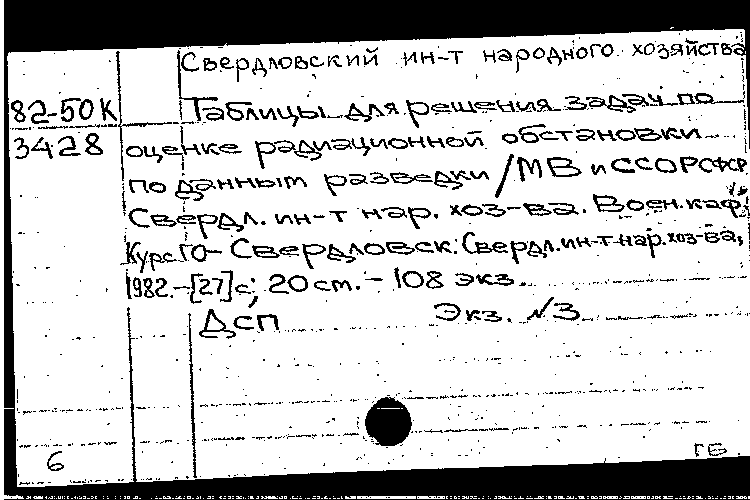 Свердловский ин-т народного хозяйства
82-50К Таблицы для решения задач по
3428 оценке радиационной обстановки
по данным разведки /МВ и ССО РСФСР
Свердл. ин-т нар. хоз-ва. Воен. каф;
Курс ГО- Свердловск: Свердл. ин-т нар. хоз-ва,
1982.-[27]с; 20 см. - 108 экз.
ДСП Экз. №3
6 ГБ